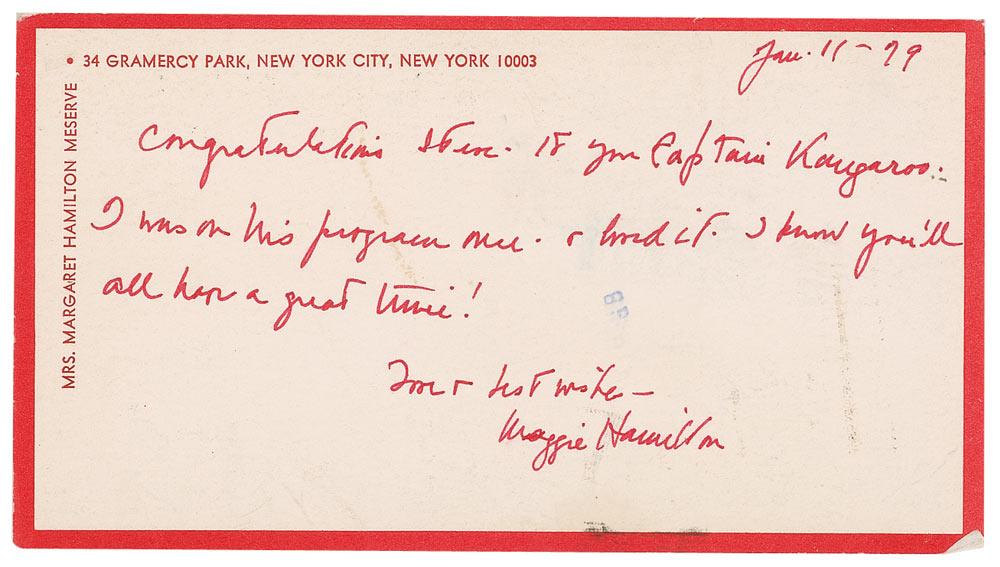 • 34 GRAMERCY PARK, NEW YORK CITY, NEW YORK 10003
MRS. MARGARET HAMILTON MESERVE
Jan. 11 - 79
Congratulations Steve. If you Captain Kangaroo.
I was on his program once. & loved it. I know you'll
all have a great time!
Love & best wishes —
Maggie Hamilton